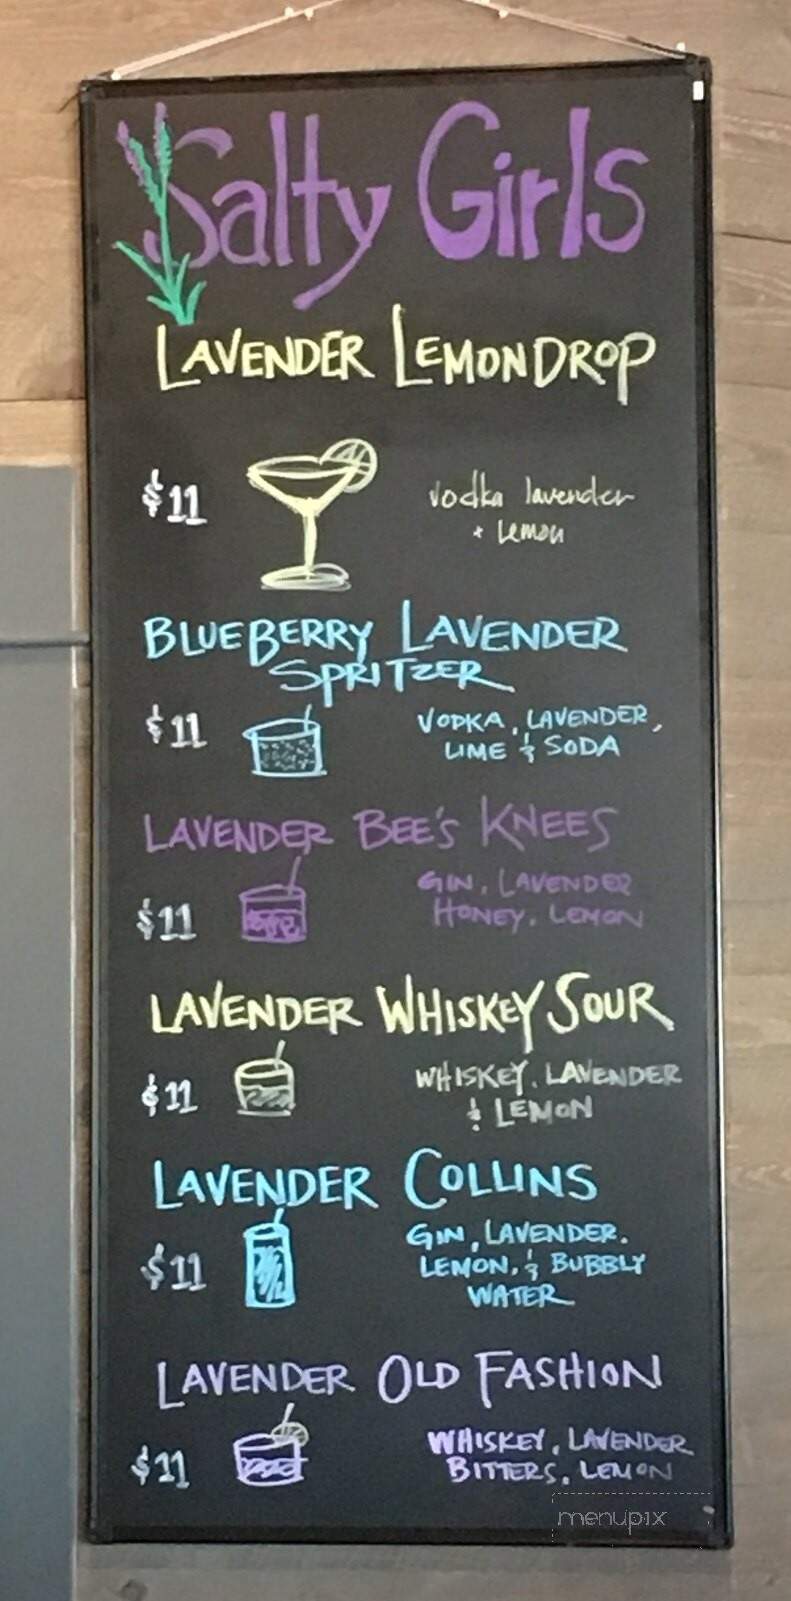 Salty Girls
LAVENDER LEMONDROP
$11
vodka lavender
+ Lemon
BLUEBERRY LAVENDER
SPRITZER
$11
VODKA, LAVENDER,
LIME & SODA
LAVENDER BEE'S KNEES
$11
GIN, LAVENDER
HONEY, LEMON
LAVENDER WHISKEY SOUR
$11
WHISKEY, LAVENDER
& LEMON
LAVENDER COLLINS
$11
GIN, LAVENDER,
LEMON, & BUBBLY
WATER
LAVENDER OLD FASHION
$11
WHISKEY, LAVENDER
BITTERS, LEMON
menupix